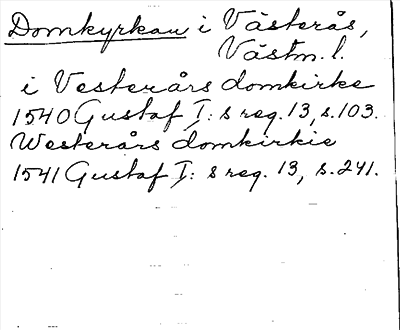 Domkyrkan i Västerås,
Västm. l.
i Vesterårs domkirke
1540 Gustaf I:s reg. 13, s. 103.
Westerårs domkirkie
1541 Gustaf I:s reg. 13, s. 241.